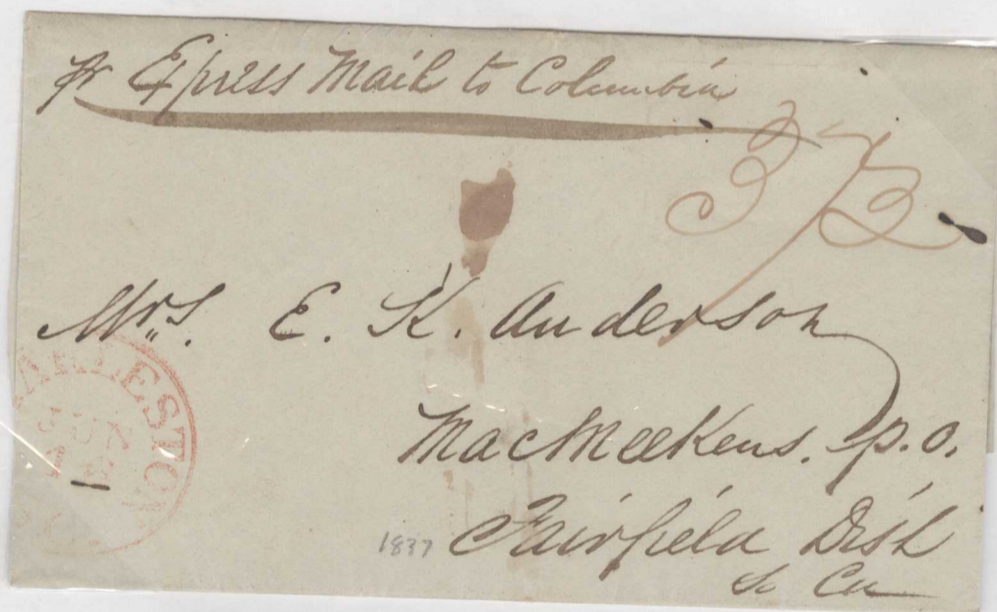 pr Express Mail to Columbia
37½
Mrs. E. K. Anderson
MacMeekens. p.o.
Fairfield Dist
So Ca
CHARLESTON
JUN
1837